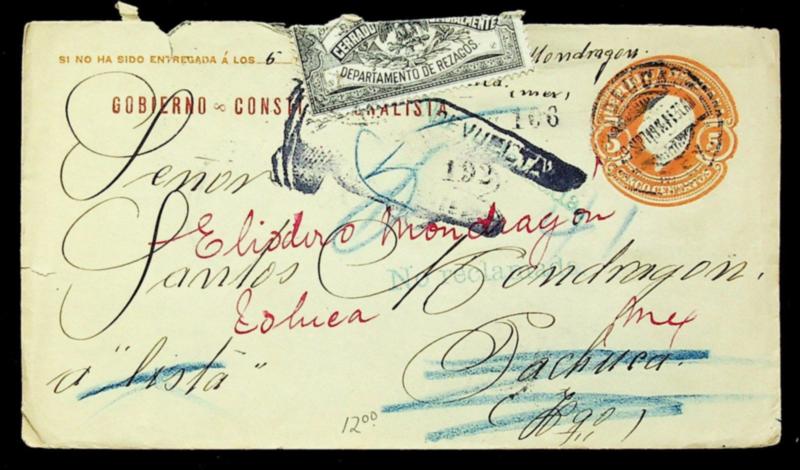 SI NO HA SIDO ENTREGADA Á LOS 6
Mondragon.
CERRADO OFICIALMENTE
DEPARTAMENTO DE REZAGOS
(mex)
GOBIERNO CONSTI NALISTA
106
5 5
CINCO CENTAVOS
PACHUCA
192
Señor
Eliodoro Mondragon
Santos Mondragon.
No reclamada
Toluca Mex
a "lista" Pachuca.
Hgo.)
12.00